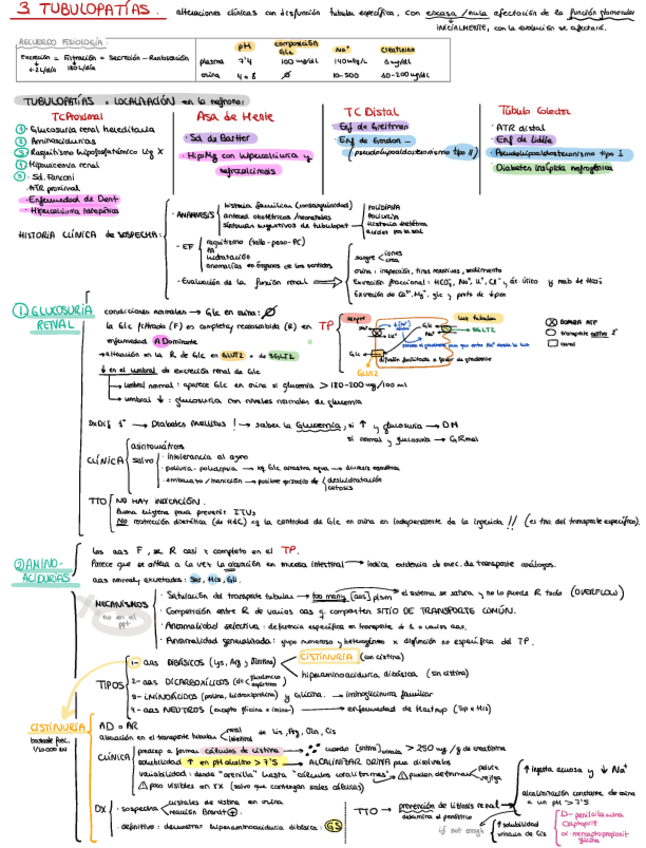 3 TUBULOPATÍAS. alteraciones clínicas con disfunción tubular específica, con escasa/nula afectación de la función glomerular
INICIALMENTE, con la evolución se afectará.
RECUERDO FISIOLOGÍA:
Excreción = Filtración + Secreción - Reabsorción
1-2L/día 180L/día
pH composición Glc Na+ creatinina
plasma 7'4 100 mg/dL 140 mEq/L 1 mg/dL
orina 4-8 Ø 10-500 10-200 mg/dL
TUBULOPATÍAS + LOCALIZACIÓN en la nefrona:
TC Proximal
① Glucosuria renal hereditaria
② Aminoacidurias
③ Raquitismo hipofosfatémico lig X
④ Hipouricemia renal
⑤ Sd. Fanconi
ATR proximal
- Enfermedad de Dent
- Hipercalciuria
Asa de Henle
- Sd. de Bartter
- HipoMg con hipercalciuria y nefrocalcinosis
TC Distal
- Enf de Gitelman
- Enf de Gordon
(pseudohipoaldosteronismo tipo II)
Túbulo Colector
- ATR distal
- Enf de Liddle
- Pseudohipoaldosteronismo tipo I
- Diabetes insípida nefrogénica
HISTORIA CLÍNICA de SOSPECHA:
- ANAMNESIS
historia familiar (consanguinidad)
anteced. obstétricos/neonatales
síntomas sugestivos de tubulopat
polidipsia
poliuria
historia dietética
avidez por la sal
- EF
raquitismo (talla-peso-PC)
TA
hidratación
anomalías en órganos de los sentidos
- Evaluación de la función renal
sangre iones
orina: inspección, tiras reactivas, sedimento
Excreción fraccional: HCO3, Na+, K+, Cl- y ác. úrico y reab de HCO3
Excreción de Ca2+, Mg2+, glc y prots de ↓pm
① GLUCOSURIA RENAL
condiciones normales → Glc en orina: Ø
la Glc filtrada (F) es completa/ reabsorbida (R) en TP
enfermedad A Dominante
→ alteración en la R de Glc en GLUT2 o de SGLT2
↓ en el umbral de excreción renal de Glc
umbral normal: aparece Glc en orina si glucemia > 180-200 mg/100 ml
umbral ↓: glucosuria con niveles normales de glucemia
sangre
luz tubular
Na+
Glc
SGLT2
GLUT2
difusión facilitada a favor de gradiente
BOMBA ATP
transporte activo 2º
canal
DxDif 1º → Diabetes Mellitus! → saber la Glucemia, si ↑ y glucosuria → DM
si normal y glucosuria → GRnal
CLÍNICA
asintomáticos
salvo
· intolerancia al ayuno
· poliuria-polidipsia → xq Glc arrastra agua → diuresis osmótica
· embarazo/inanición → posible episodio de deshidratación
cetosis
TTO
NO HAY INDICACIÓN.
Buena higiene para prevenir ITUs
No restricción dietética (de HdC) xq la cantidad de Glc en orina es independiente de la ingerida!! (es tno. del transporte específico).
② AMINO-ACIDURIAS
Los aas F, se R casi x completo en el TP.
Parece que se altera a la vez la absorción en mucosa intestinal → indica existencia de mec. de transporte análogos.
aas normal/ excretados: Ser, His, Gli.
MECANISMOS
no en el ppt
· Saturación del transporte tubular → too many [aas] plsm → el sistema se satura y no lo puede R todo (OVERFLOW)
· Competición entre R de varios aas q comparten SITIO DE TRANSPORTE COMÚN.
· Anormalidad selectiva: deficiencia específica en transporte de 1 o varios aas.
· Anormalidad generalizada: grupo numeroso y heterogéneo x disfunción no específica del TP.
TIPOS
1- aas DIBÁSICOS (Lys, Arg y Ornitina)
CISTINURIA (con cistina)
hiperaminoaciduria dibásica (sin cistina)
2- aas DICARBOXÍLICOS (ác glutámico aspártico)
3- IMINOÁCIDOS (prolina, hidroxiprolina) y Glicina. → iminoglicinuria familiar
4- aas NEUTROS (excepto glicina e imino-) → enfermedad de Hartnup (Trp e His)
CISTINURIA
bastante frec.
AD o AR
alteración en el transporte tubular renal intestinal de Lis, Arg, Orn, Cis
CLÍNICA
predisp a formar cálculos de cistina → cuando [cistina] urinaria > 250 mg/g de creatinina
solubilidad ↑ en pH alcalino > 7'5 → ALCALINIZAR ORINA para disolverlos
variabilidad: desde "arenilla" hasta "cálculos coraliformes" → pueden detectarse pelvis
vejiga
poco visibles en RX (salvo que contengan sales cálcicas)
DX
· sospecha cristales de cistina en orina
reacción Brand +
· definitivo: demostrar hiperaminoaciduria dibásica. GS
TTO → prevención de litiasis renal
determina el pronóstico
↑ ingesta acuosa y ↓ Na+
alcalinización constante de orina a un pH > 7'5
if not enough
↑ solubilidad
vínculo de Cis
D-penicilamina
Captopril
α-mercaptopropionil glicina